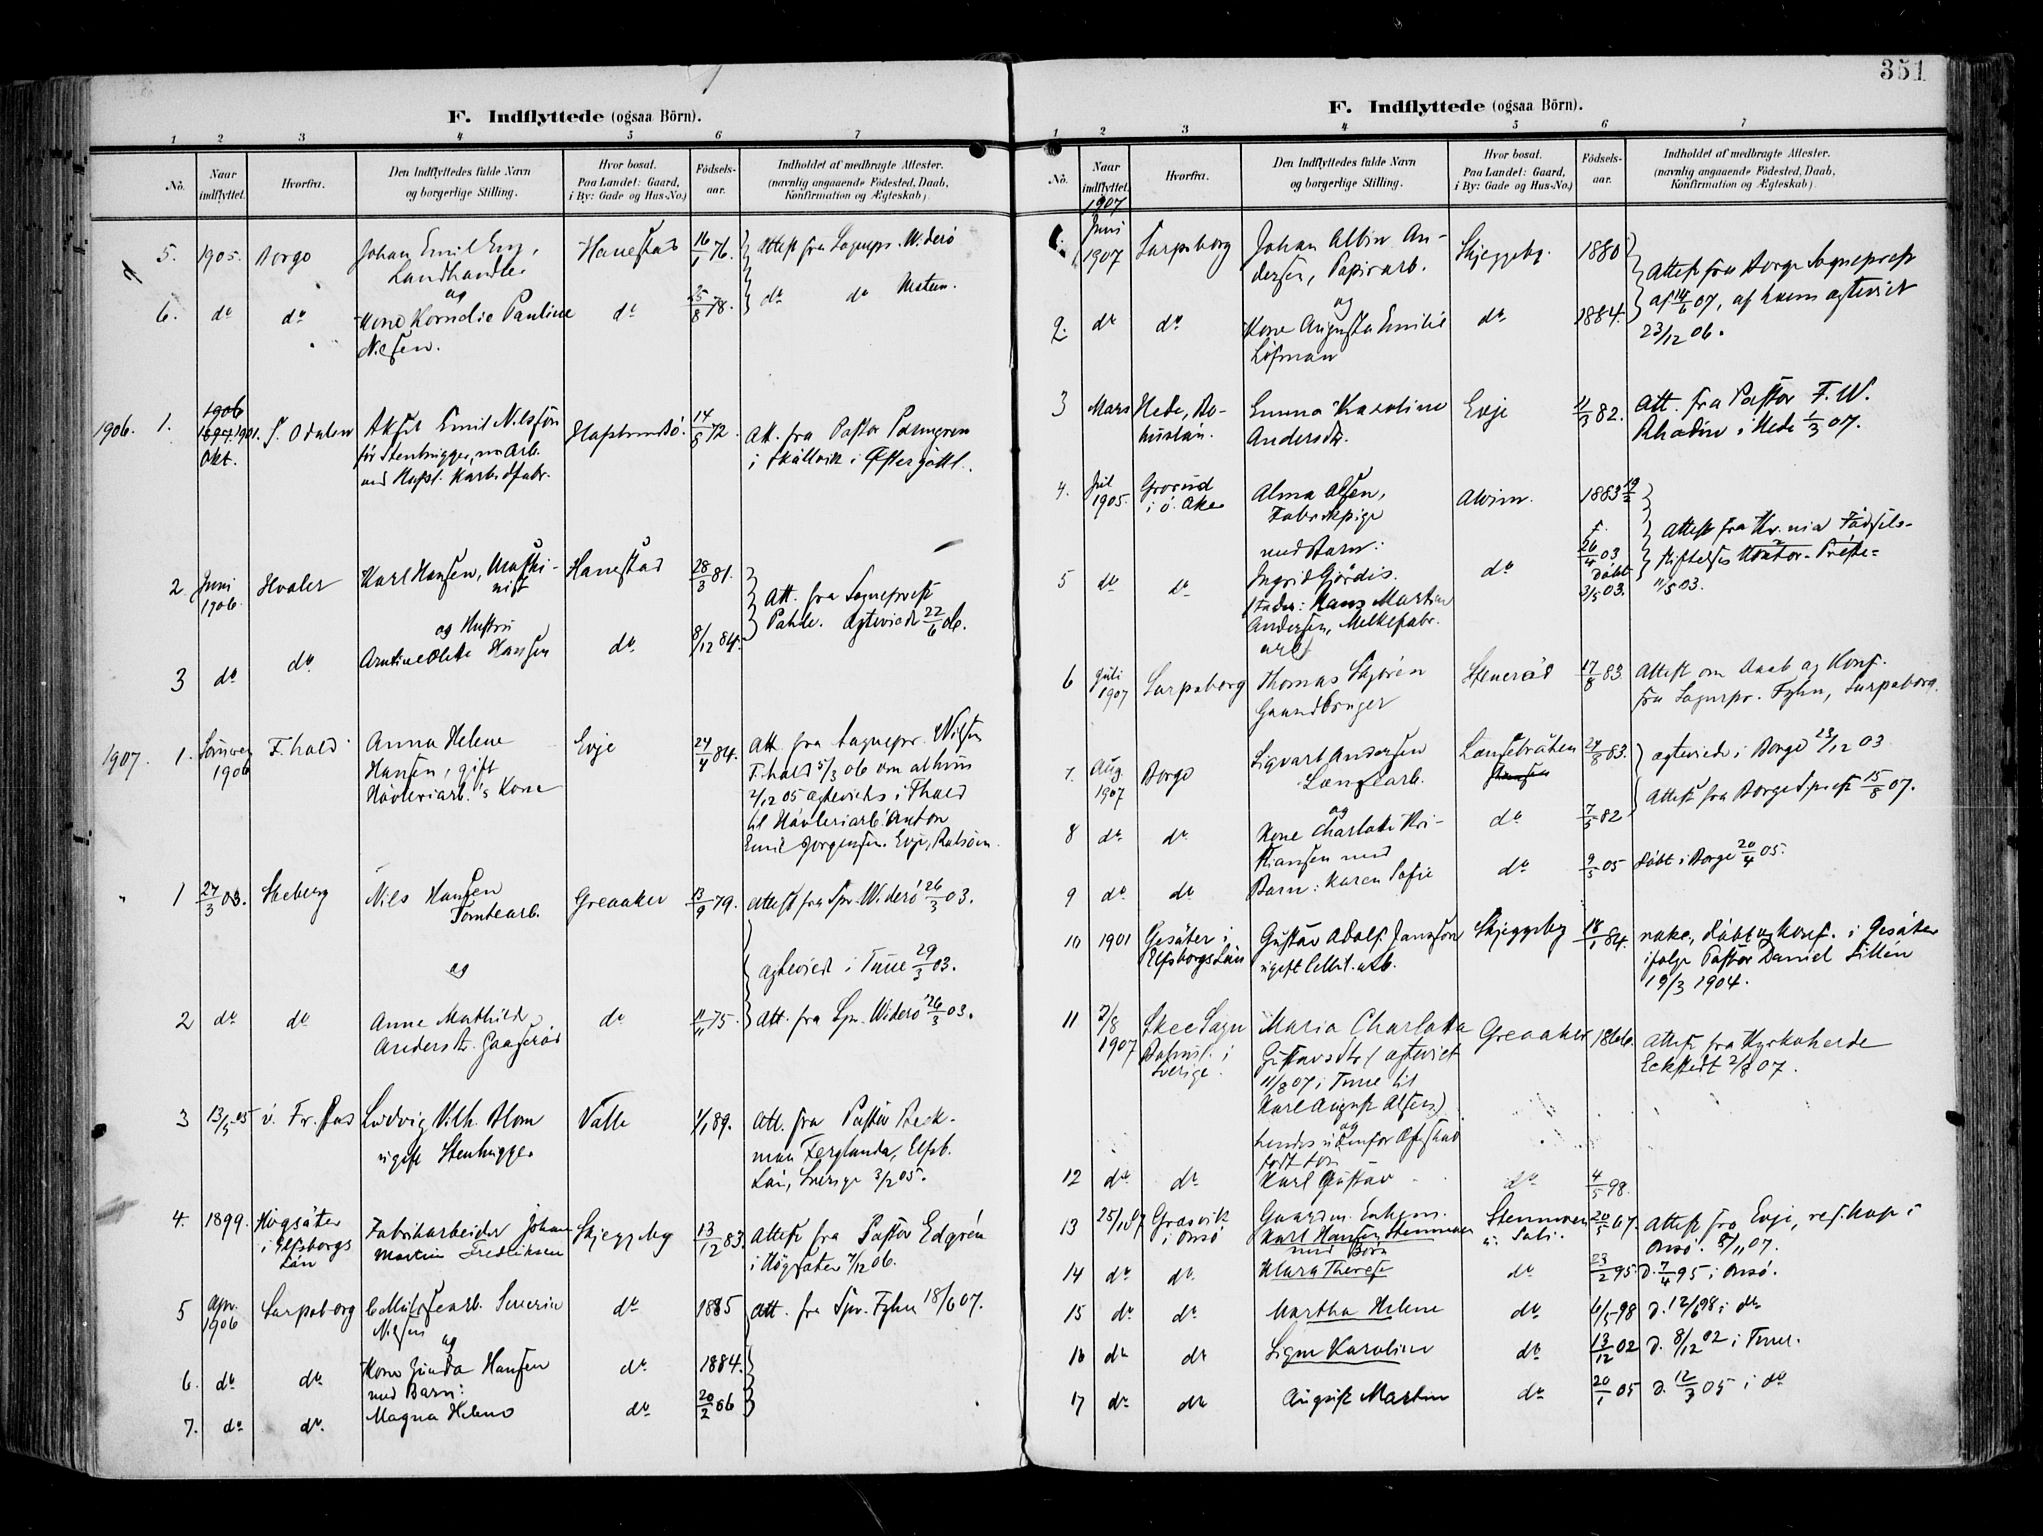 F. Indflyttede (ogsaa Börn).
1 2 3 4 5 6 7
No.
Naar indflyttet.
Hvorfra.
Den Indflyttedes fulde Navn
og borgerlige Stilling.
Hvor bosat.
Paa Landet: Gaard,
i By: Gade og Hus-No.)
Födsels-
aar.
Indholdet af medbragte Attester.
(navnlig angaaende Födested, Daab,
Konfirmation og Ægteskab).
5. 1905. Borge Johan Emil Eng, Hanestad 16/1 76. Attest fra Sognepr. Widerö
Landhandler
og
6. do do Kone Kornelia Pauline do 25/8 78. do do
Nilsen.
1906. 1. 1906 1901. Okt. S. Odalen Aksel Emil Nilsson 14/8 72. Att. fra Pastor Palmgren
för Stenhugger, nu Arb. i Skällvik i Östergötl.
ved Hafsl. Karbidfabr.
2 Juni 1906. Hvaler Karl Hansen, Maski- Hanestad 28/3 81. Att. fra Sogneprest
nist
og Hustru
3 do do Hansen do 8/12 84. Ægteviede 22/6 06.
1907. 1. 1906 F.hald Anna Helene Evje 24/4 84. Att. fra Sognepr. Nilsen
Hansen, gift F.hald 5/3 06 om at hun
Hövleriarb.'s Kone 2/12 05 ægteviets i F.hald
til Hövleriarb. Anton
Emil Jörgensen. Evje,
1 27/3 03. Skeberg Nils Hansen Greaaker 13/9 79. Attest fra Spr. Widerö 26/3 03.
Tomtearb.
og ægteviede i Tune 29/3 03.
2 do do Anne Mathilde do 11/11 75. Att. fra Spr. Widerö 26/3 03.
Andersdtr.
3 13/5 05 Ludvig Vilh. Blom Valle 1/1 89. Att. fra Pastor Beck-
ugift Stenhugger man Ferglanda, Elfsb.
Län, Sverige 3/2 05.
4. 1899. Högsäter Fabrikarbeider Johan Skjeggeby 13/12 83. Attest fra Pastor Edgrén
i Elfsborgs Martin Fredriksen i Högsäter 7/12 06.
Län
5 Apr. 1906 Sarpsborg Severin do 1885 Att. fra Spr. Fyhn 18/6 07.
Nilsen
og
6. do do Kone Gunda Hansen do 1884.
med Barn:
7. do do Magna Helene do 20/2 06
351
F. Indflyttede (ogsaa Börn).
1 2 3 4 5 6 7
No.
Naar indflyttet.
Hvorfra.
Den Indflyttedes fulde Navn
og borgerlige Stilling.
Hvor bosat.
Paa Landet: Gaard,
i By: Gade og Hus-No.)
Födsels-
aar.
Indholdet af medbragte Attester.
(navnlig angaaende Födested, Daab,
Konfirmation og Ægteskab).
1907
1. Juni 1907 Sarpsborg Johan Albin An- Skjeggeby. 1880 Attest fra Borge Sogneprest
dersen, Papirarb. af 14/6 07, af hvem ægteviet
og 23/12 06.
2. do do Kone Augusta Emilie do 1884.
Löfman
3 Mars Hede, Bo- Emma Karoline Evje 11/3 82. Att. fra Pastor F. W.
huslän. Andersdtr. Rhodin i Hede 1/3 07.
4. Juli 1905. Grorud Alma Olsen, Alvim. 1883
i Ö. Aker Fabrikpige Attest fra Kr.nia Födsels-
med Barn: stiftelses Kontor
5 do do Ingrid Gjördis. do f. 26/4 03 11/5 03.
(Fader: Hans Martin döbt 3/5 03.
Andersen, Melkefabr.
arb.)
6 Juli 1907 Sarpsborg Thomas Skjören Steneröd 17/8 83 Attest om Daab og Konf.
Gaardbruger fra Sognepr. Fyhn, Sarpsborg.
7. Aug. 1907 Borge Sigvart Andersen 24/8 83. ægteviede i Borge 23/12 03
Lænsearb. Attest fra Borge Sprest 15/8 07.
og
8 do do Kone Charlotte Kri- do 7/5 82
stiansen med
9 do do Barn: Karen Sofie do 05 döbt i Borge 20/4 05.
10 1901 Gesäter i Gustav Adolf Jansson Skjeggeby 18/1 84. vakc., döbt og konf. i Gesäter
Elfsborgs Län ugift Cellul. arb. ifölge Pastor Daniel Sillén
19/3 1904.
11 2/8 1907 Skee Sogn Maria Charlotta Greaaker 1866. Attest fra Kyrkoherde
Bohusl. i Gustavsdtr (ægteviet Eckstedt 2/8 07.
Sverige. 11/8 07 i Tune til
Karl August Olsen)
og
hendes udenfor Ægteskab
födt Sön
12 do do Karl Gustav do 4/5 98.
13 25/10 07 Graavik Stenmoen 20/5 67. Attest fra Evje, res. kap. i
i Onsö Karl Hansen Stenmoen Onsö. 8/11 07.
med Börn
14 do do Klara Therese do 23/2 95 D. 7/4 95 i Onsö.
15 do do Martha Helene do 6/5 98 D. 12/6 98 i do
16 do do Signe Karoline do 13/12 02 D. 8/12 02 i Tune.
17 do do August Martin do 20/1 05 D. 12/3 05 i do